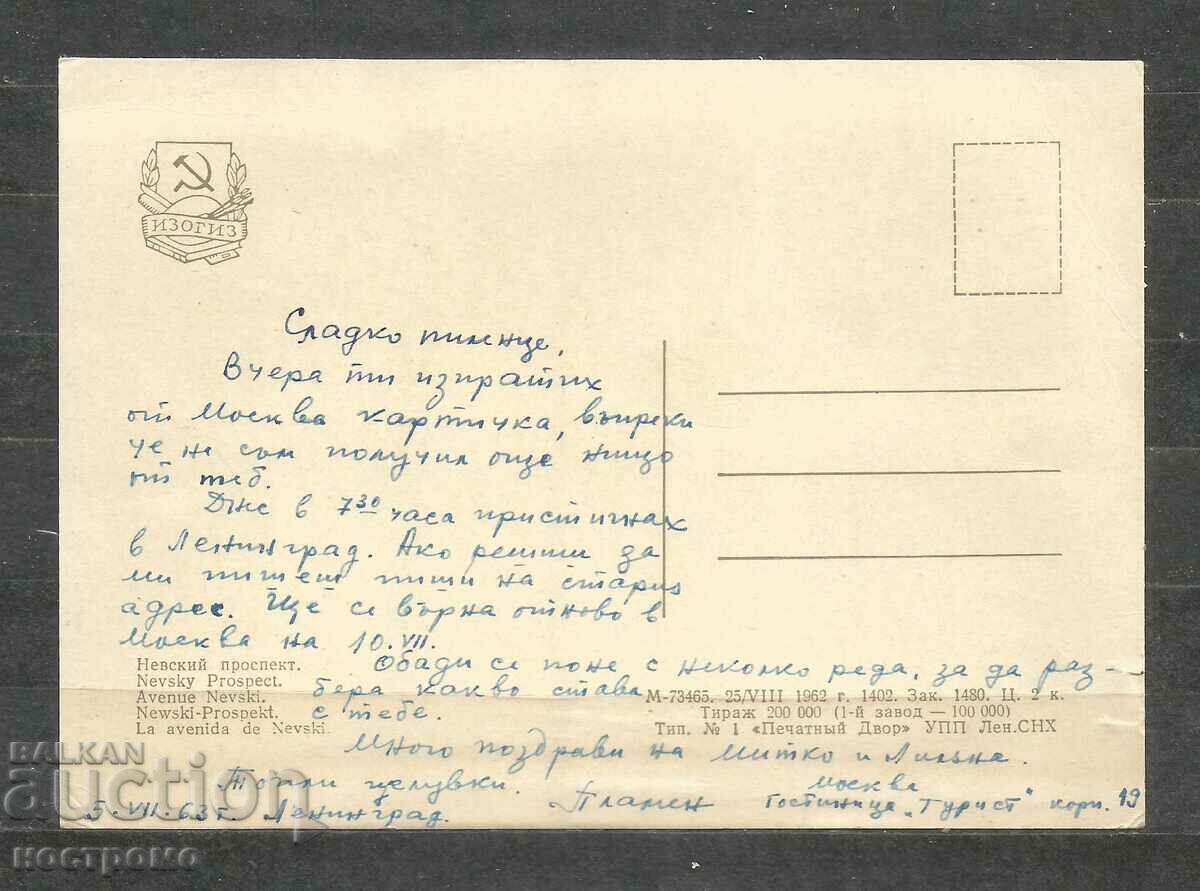 ИЗОГИЗ
Сладко пиленце,
Вчера ти изпратих
от Москва картичка, въпреки
че не съм получил още нищо
от теб.
Днес в 7 30 часа пристигнах
в Ленинград. Ако решиш да
ми пишеш пиши на стария
адрес. Ще се върна отново в
Москва на 10.VII.
Обади се поне с няколко реда, за да раз-
бера какво става
с тебе.
Много поздрави на Митко и Лиляна.
Топли целувки.
Пламен
5.VII.63 г. Ленинград.
Москва
Гостиница „Турист" корп. 19
Невский проспект.
Nevsky Prospect.
Avenue Nevski.
Newski-Prospekt.
La avenida de Nevski.
М-73465. 25/VIII 1962 г. 1402. Зак. 1480. Ц. 2 к.
Тираж 200 000 (1-й завод — 100 000)
Тип. № 1 «Печатный Двор» УПП Лен.СНХ
BALKAN
auction
костромо